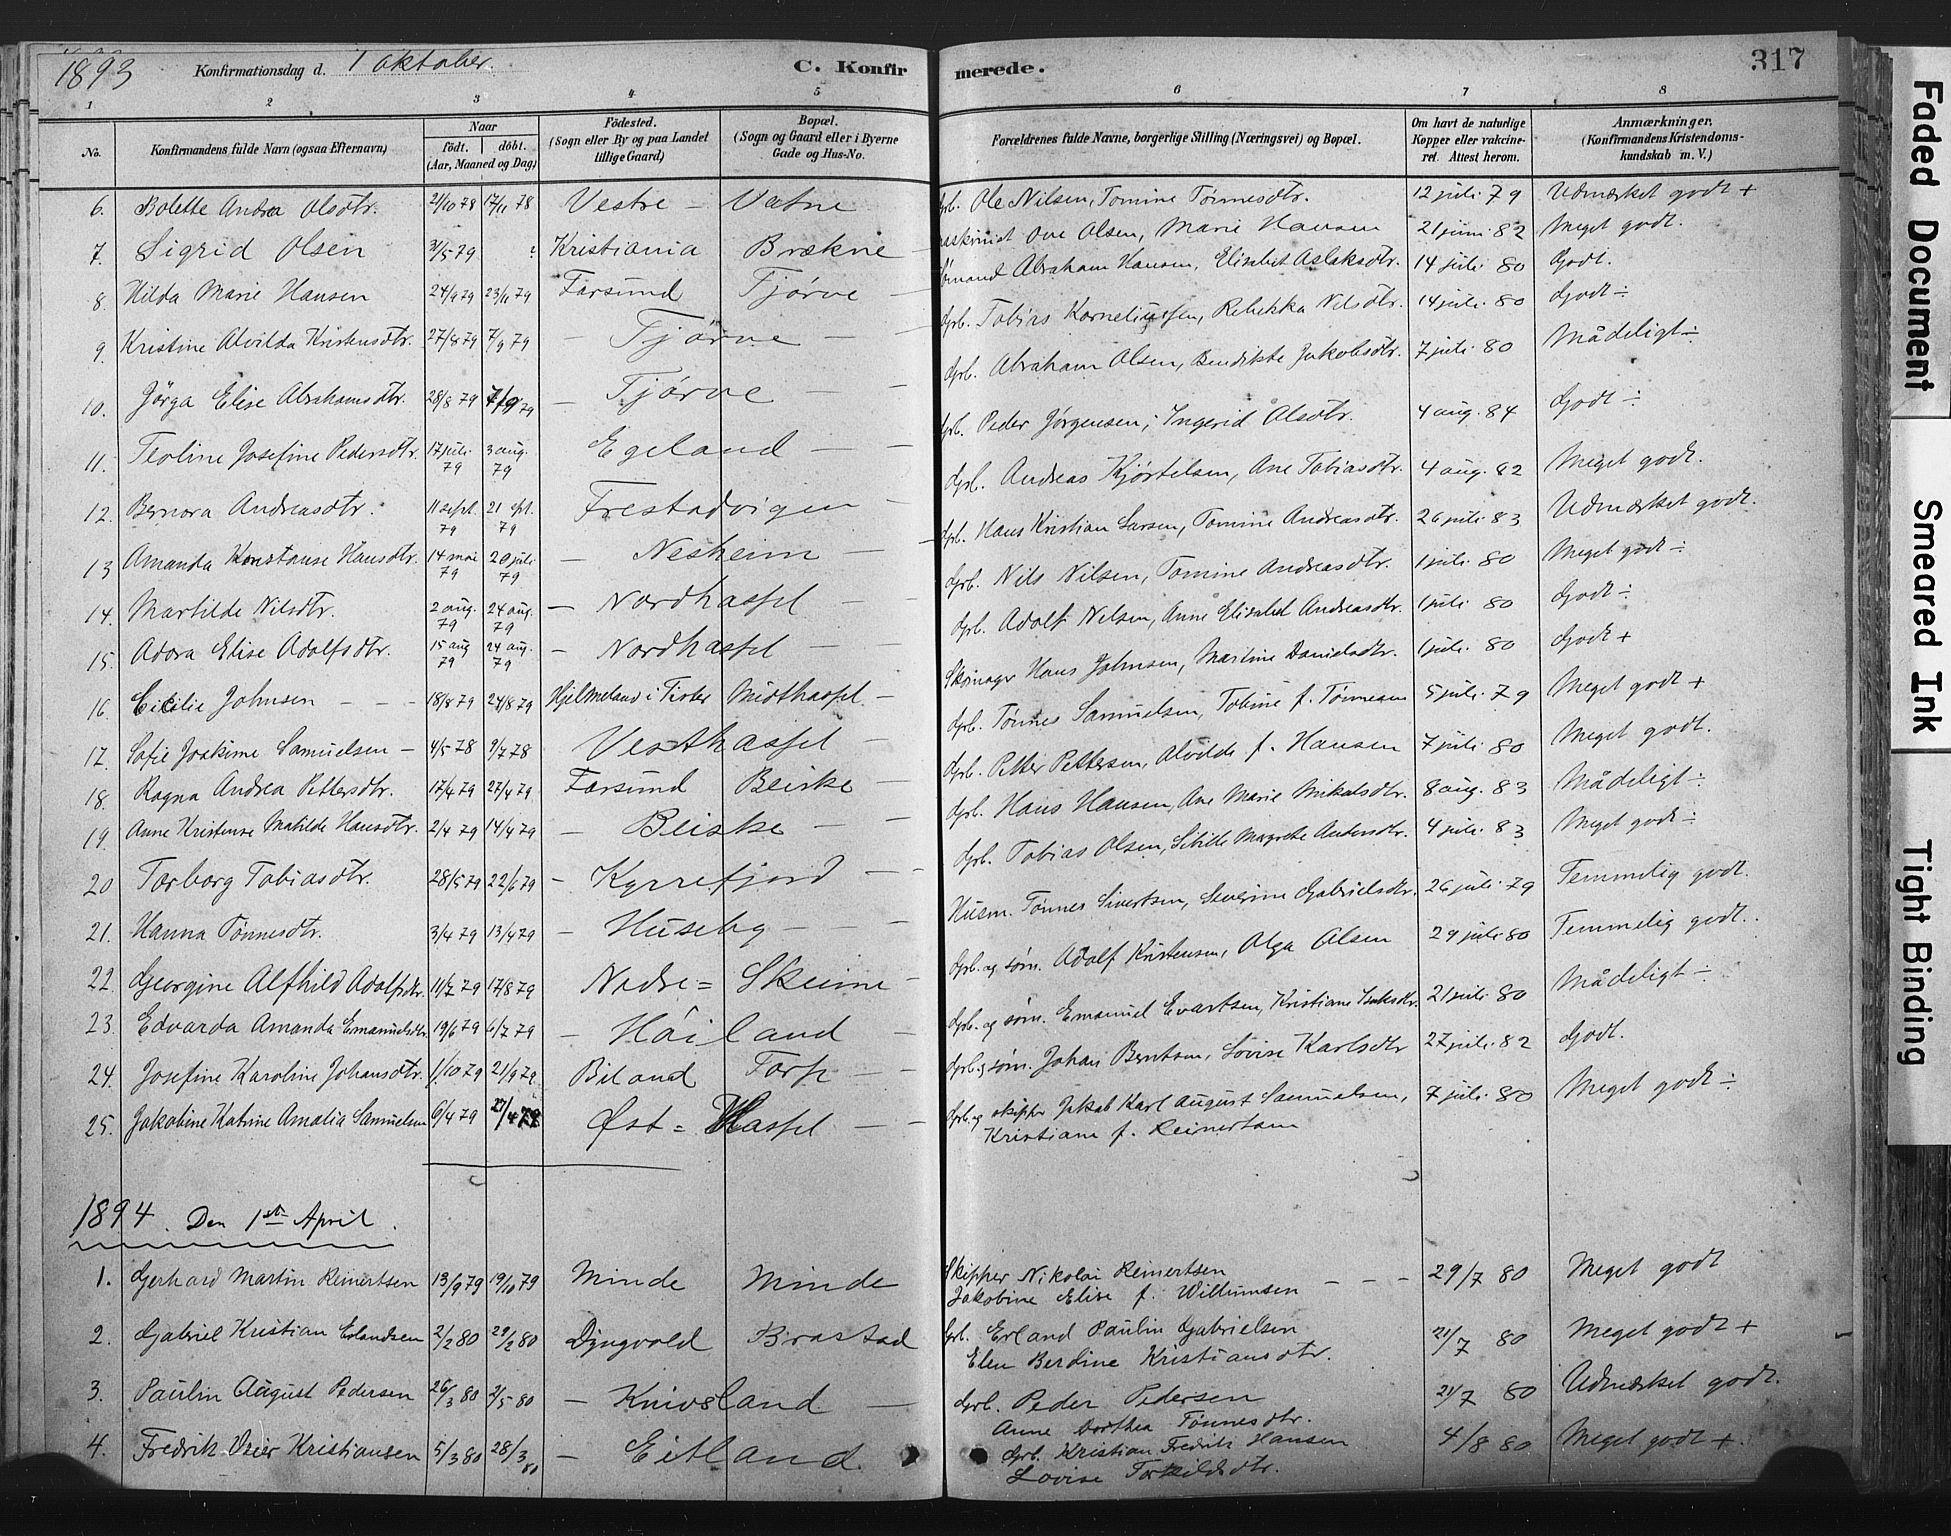 1893 Konfirmationsdag d. 1 oktober. C. Konfirmerede. 317
1 2 3 4 5 6 7 8
No. Konfirmandens fulde Navn (ogsaa Efternavn) Naar født. døbt. (Aar, Maaned og Dag) Fødested. (Sogn eller By og paa Landet tillige Gaard) Bopæl. (Sogn og Gaard eller i Byerne Gade og Hus-No. Forældrenes fulde Navne, borgerlige Stilling (Næringsvei) og Bopæl. Om havt de naturlige Kopper eller vakcineret. Attest herom. Anmærkninger. (Konfirmandens Kristendomskundskab m. V.)
6. Bolette Andrea Olsdtr. 21/10 78 17/11 78 Vestre - Vatne Grb. Ole Nilsen, Tomine Tønnesdtr. 12 juli 79 Udmærket godt +
7. Sigrid Olsen 31/5 79 ? Kristiania Brækne - Ove Olsen, Marie Hansen 21 juni 82 Meget godt.
8. Hilda Marie Hansen 24/9 79 23/11 79 Farsund Tjørve - Abraham Hansen, Elisabet Aslaksdtr. 14 juli 80 Godt.
9. Kristine Alvilda Kristensdtr. 27/8 79 7/9 79 - Tjørve - Grb. Tobias Korneliussen, Rebekka Nilsdtr. 14 juli 80 Godt ÷
10. Jörga Elise Abrahamsdtr. 28/8 79 7/9 79 - Tjørve - Grb. Abraham Olsen, Bendikte Jakobsdtr. 7 juli 80 Mådeligt ÷
11. Teoline Josefine Pedersdtr. 17 juli 79 3 aug. 79 Egeland - Grb. Peder Jørgensen, Ingerid Olsdtr. 4 aug. 84 Godt ÷
12. Bernora Andreasdtr. 11 sept. 79 21 spt. 79 Frestadvigen - Grb. Andreas Kjørtilsen, Ane Tobiasdtr. 4 aug. 82 Meget godt.
13 Amanda Konstanse Hansdtr. 14 mai 79 20 juli 79 - Nesheim - Grb. Hans Kristian Larsen, Tomine Andreasdtr. 26 juli 83 Udmærket godt.
14. Martilde Nilsdtr. 2 aug. 79 24 aug. 79 - Nordhassel - Grb. Nils Nilsen, Tomine Andreasdtr. 1 juli 80 Meget godt ÷
15. Adora Elise Adolfsdtr. 15 aug 79 24 aug. 79 - Nordhassel - Grb. Adolf Nilsen, Anne Elisabet Andreasdtr. 1 juli 80 Godt ÷
16. Cicilie Johnsen - - - 18/8 79 24/8 79 Hjelmeland i Midthassel - Hans Johnsen, Martine Danielsdtr. 1 juli 80 Godt +
17. Sofie Joakime Samuelsen - 4/5 78 9/7 78 Vesthassel - Grb. Tønnes Samuelsen, Tobine f. Tönnesen 5 juli 79 Meget godt +
18. Ragna Andrea Pettersdtr. 17/4 79 27/4 79 Farsund Beiske - Grb. Petter Pettersen, Alvilde f. Hansen 7 juli 80 Meget godt.
19. Anne Kristense Matilde Hansdtr. 2/4 79 14/4 79 - Beiske - Grb. Hans Hansen, Ane Marie Mikalsdtr. 8 aug. 83 Mådeligt ÷
20 Torborg Tobiasdtr. 28/5 79 22/6 79 - Kyrrefjord - Grb. Tobias Olsen, Sibille Magrete Andersdtr. 4 juli 83 Meget godt ÷
21. Hanna Tönnesdtr. 3/4 79 13/4 79 - Huseby - Husm. Tönnes Sivertsen, Severine Gabrielsdtr. 26 juli 79 Temmelig godt.
22. Georgine Alfhild Adolfsdtr. 11/7 79 17/8 79 Nedre = Skeime - Grb. og søm. Adolf Kristensen, Olga Olsen 29 juli 80 Temmelig godt.
23. Edvarda Amanda Emanuelsdtr. 19/6 79 6/7 79 - Høiland - Grb. og søm. Emanuel Evartsen, Kristiane Isaksdtr. 21 juli 80 Mådeligt ÷
24. Josefine Karoline Johansdtr. 1/10 79 21/9 79 Biland Torp - Grb. og søm. Johan Berntsen, Lovise Karlsdtr 27 juli 82 Godt.
25. Jakobine Katrine Amalia Samuelsen 6/4 79 27/4 79 Øst = Hassel - Grb. og skipper Jakob Karl August Samuelsen, 7 juli 80 Meget godt ÷
Kristiane f. Reinertsen
1894. Den 1ste April.
1. Gerhard Martin Reinertsen 13/9 79 19/10 79 Minde Minde Skipper Nikolai Reinertsen - - - 29/7 80 Meget godt
Jakobine Elise f. Willumsen
2. Gabriel Kristian Erlandsen 2/2 80 29/2 80 Dyngvold Brastad Grb. Erland Paulin Gabrielsen 21/7 80 Meget godt +
Elen Berdine Kristiansdtr.
3. Paulin August Pedersen 26/3 80 2/5 80 - Knivsland - Grb. Peder Pedersen 21/7 80 Udmærket godt.
Anne Dorthea Tönnesdtr.
4. Fredrik Veier Kristiansen 5/3 80 28/3 80 - Eitland Grb. Kristian Fredrik Hansen 4/8 80 Meget godt +.
Lovise Torkildsdtr.
Faded Document
Smeared Ink
Tight Binding